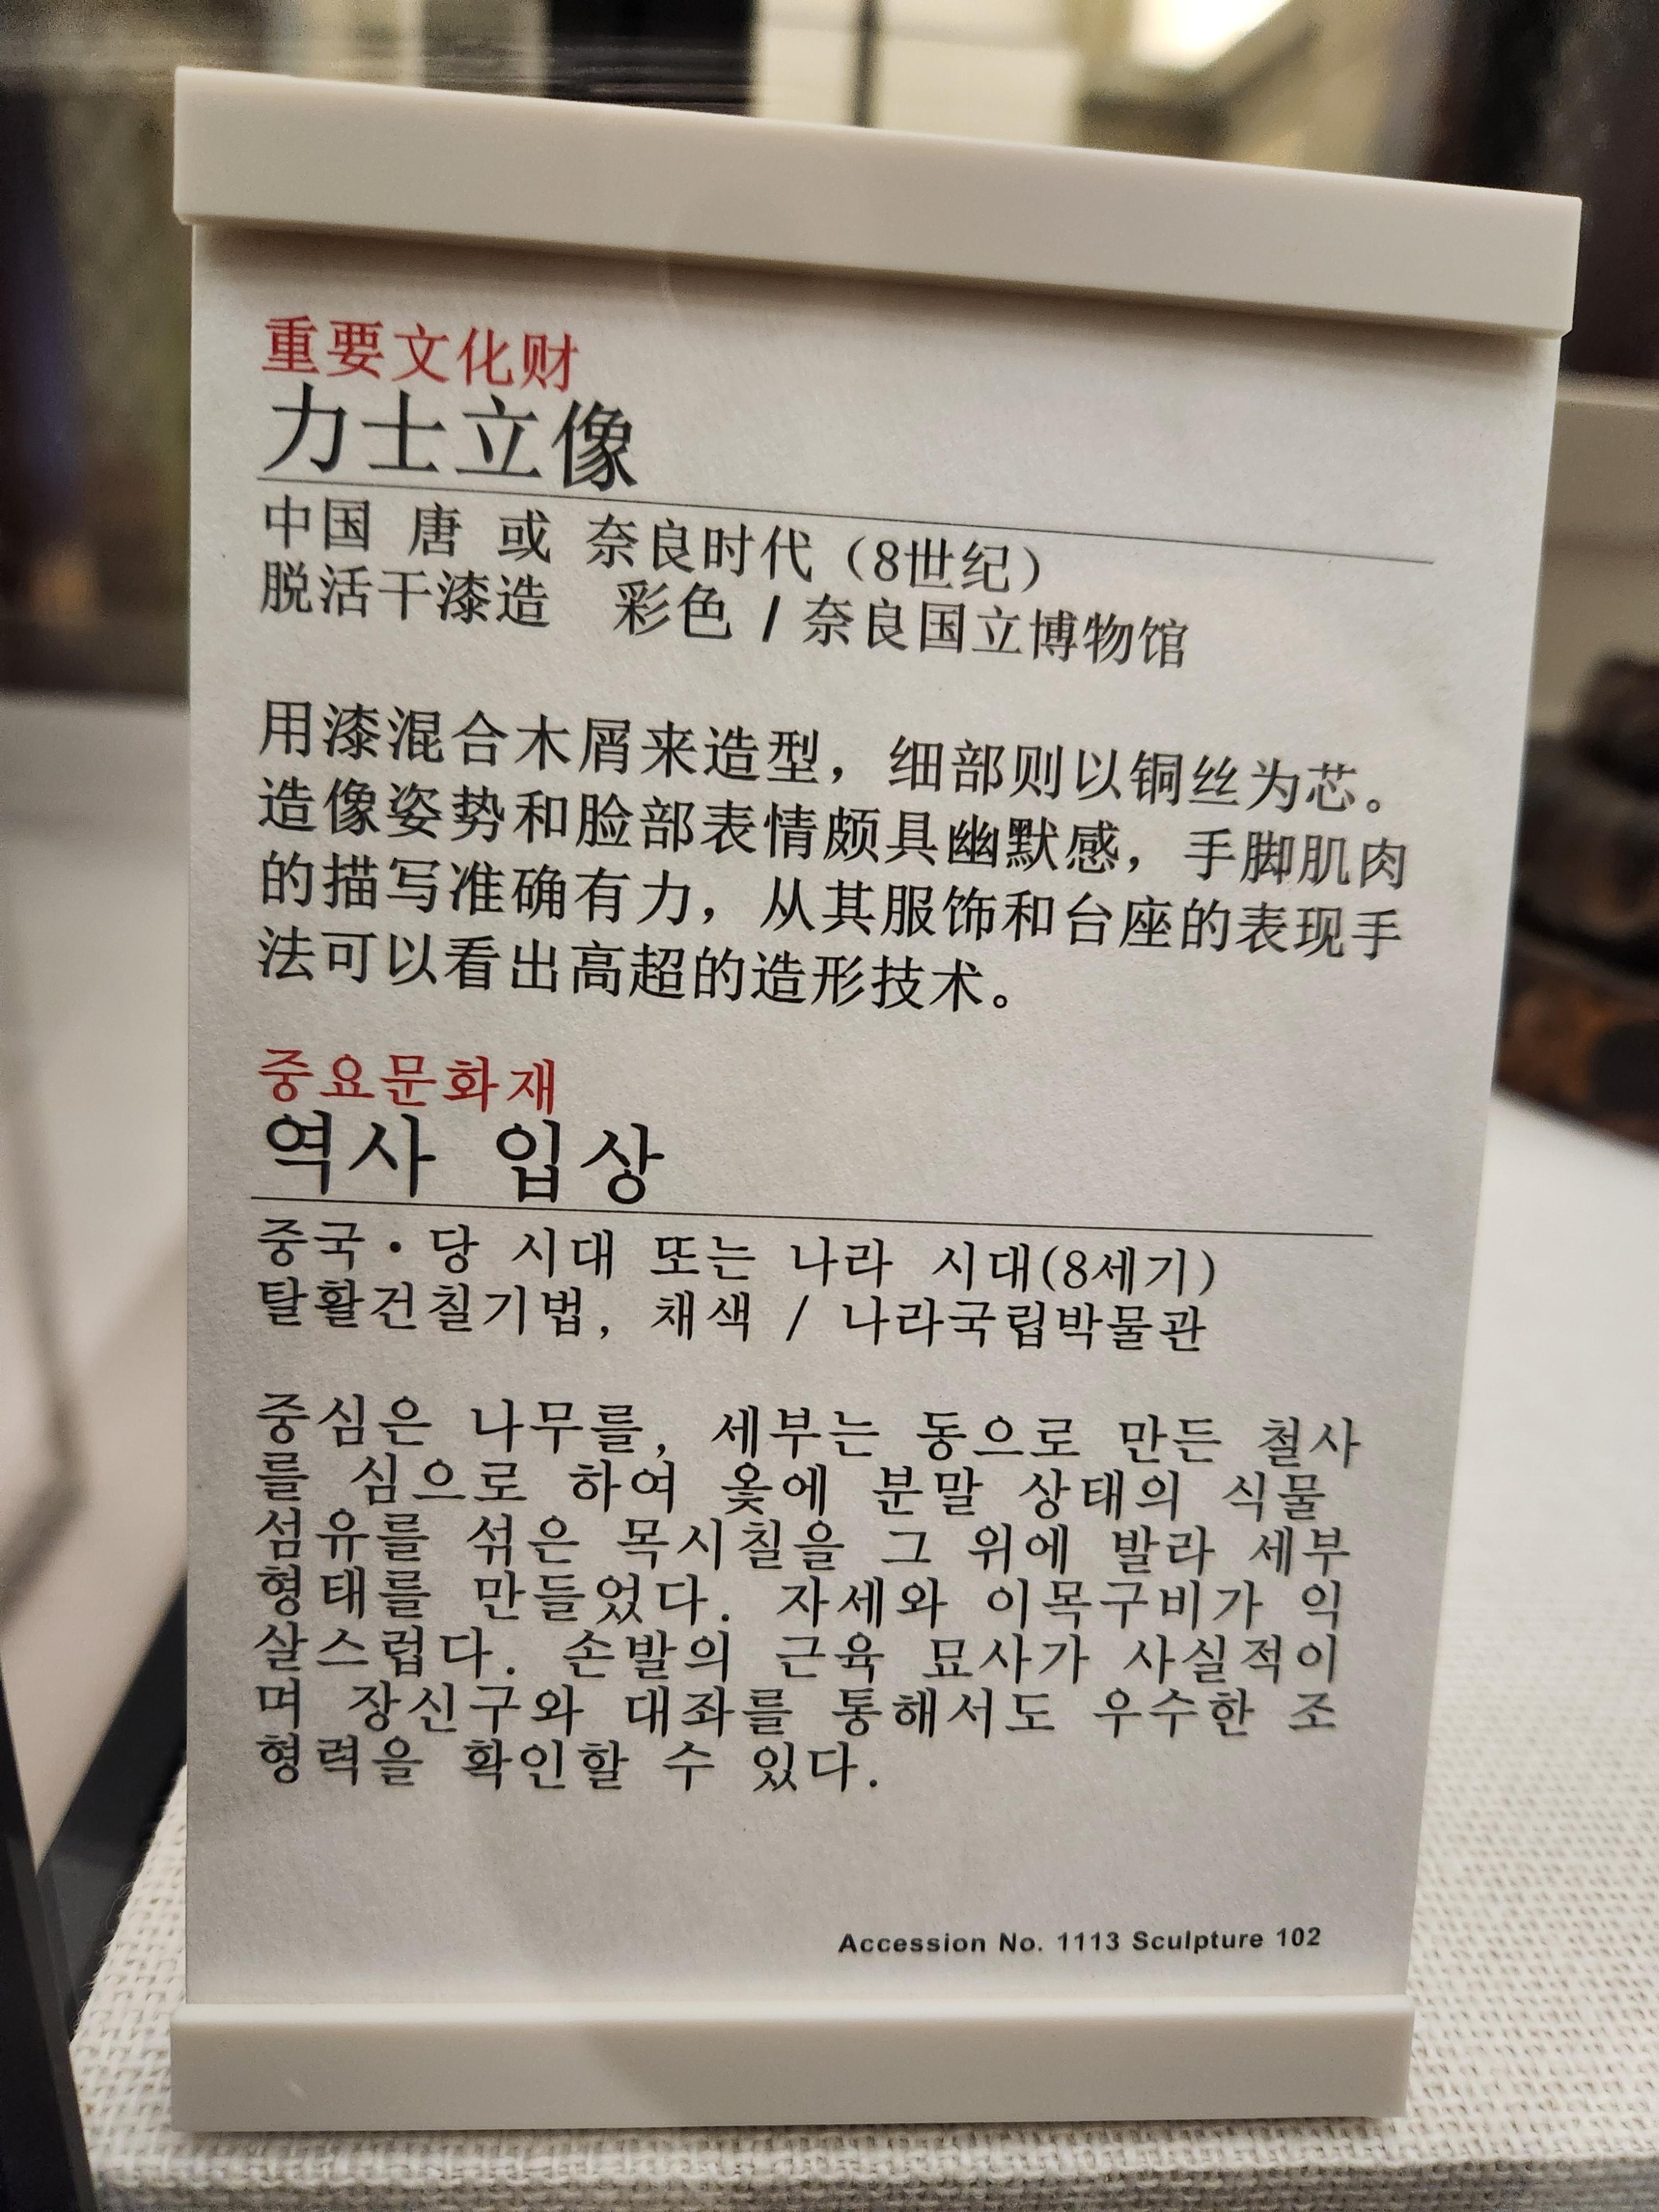 重要文化财
力士立像
中国 唐 或 奈良时代（8世纪）
脱活干漆造　彩色 / 奈良国立博物馆
用漆混合木屑来造型，细部则以铜丝为芯。
造像姿势和脸部表情颇具幽默感，手脚肌肉
的描写准确有力，从其服饰和台座的表现手
法可以看出高超的造形技术。
중요문화재
역사 입상
중국・당 시대 또는 나라 시대(8세기)
탈활건칠기법, 채색 / 나라국립박물관
중심은 나무를, 세부는 동으로 만든 철사
를 심으로 하여 옻에 분말 상태의 식물
섬유를 섞은 목시칠을 그 위에 발라 세부
형태를 만들었다. 자세와 이목구비가 익
살스럽다. 손발의 근육 묘사가 사실적이
며 장신구와 대좌를 통해서도 우수한 조
형력을 확인할 수 있다.
Accession No. 1113 Sculpture 102